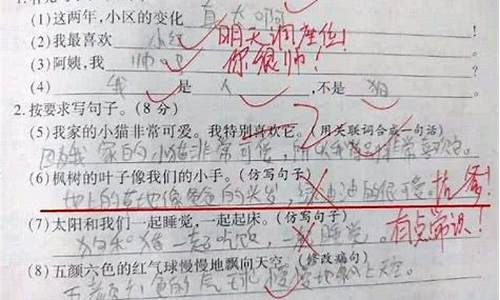 (1)这两年,小区的变化 真大啊
(2)我最喜欢 小红 明天调座位!
(3)阿姨,我 帅吧 你很帅!
(4) 我 是 人 ,不是 狗
2.按要求写句子。(8分)
(5)我家的小猫非常可爱。我特别喜欢它。(用关联词合成一句话)
因为我家的小猫非常可爱,所以我非常喜欢它。
(6)枫树的叶子像我们的小手。(仿写句子)
地上的草地像爸爸的头发,绿油油的很可爱。
(7)太阳和我们一起睡觉,一起起床。(仿写句子)
狗和猪一起吃饭,一起睡觉。有点常识!
(8)五颜六色的红气球慢慢地飘向天空。(修改病句)
五颜六色的气球慢慢地飘上天空。